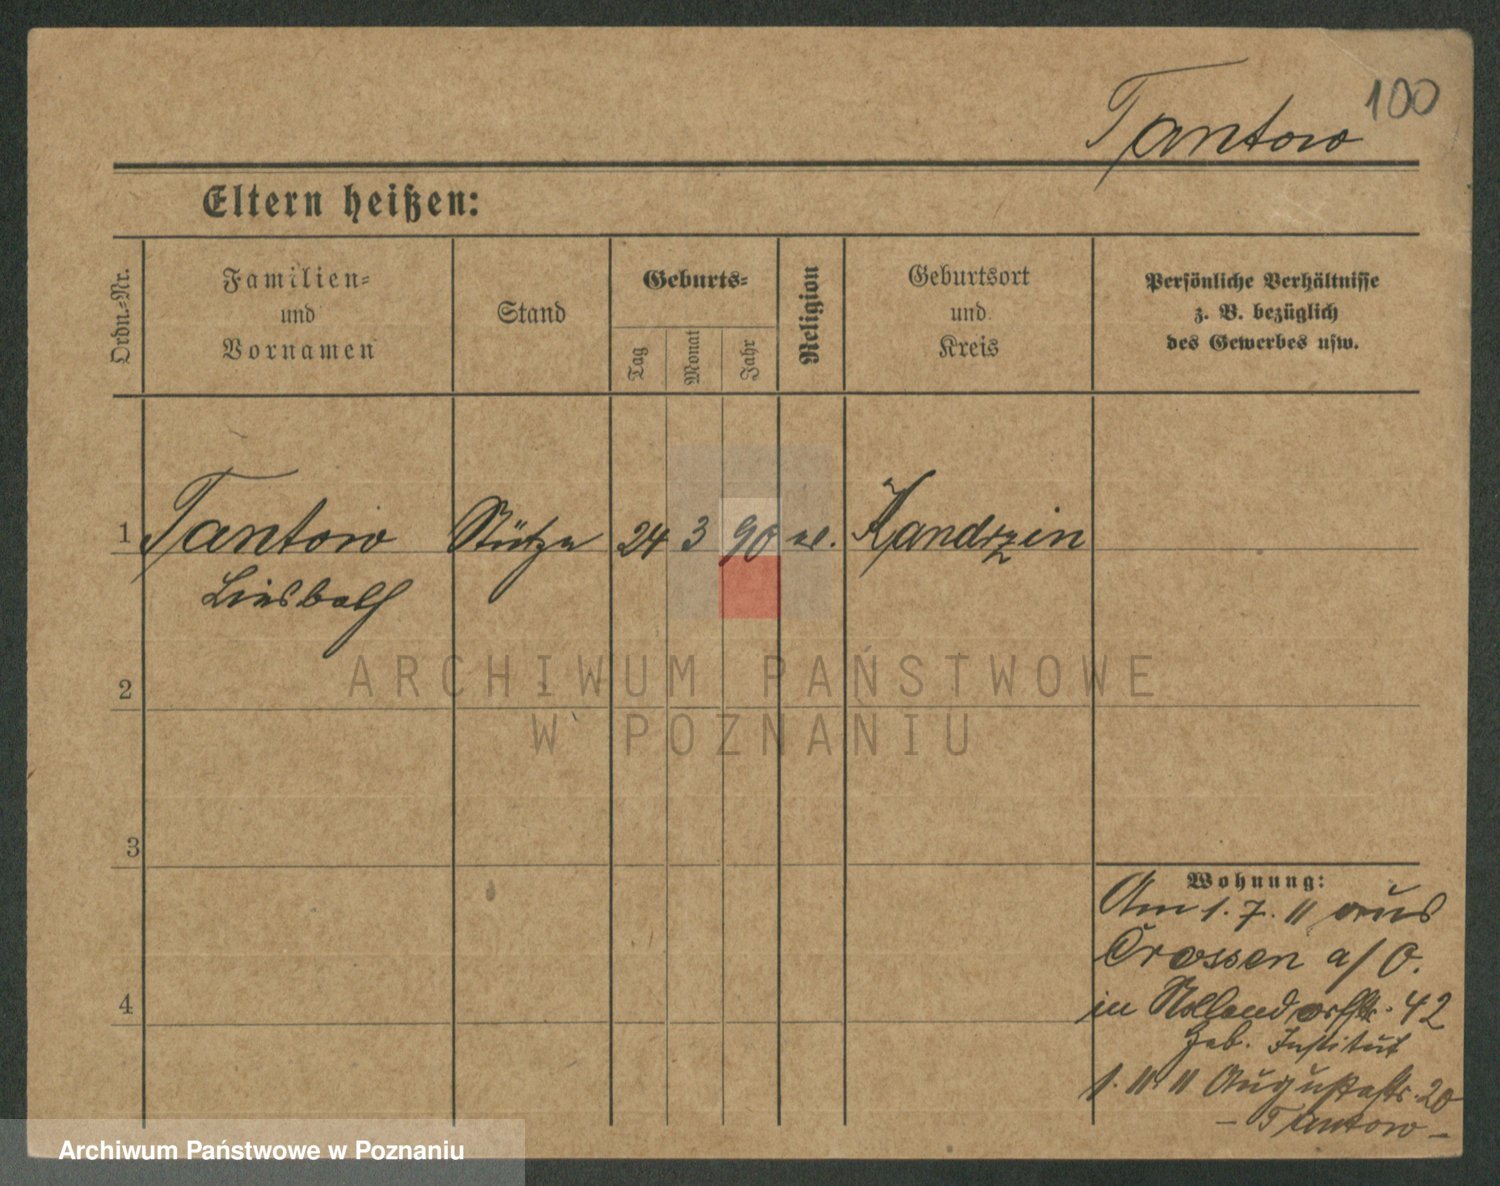 100
Tantow
Eltern heißen:
Ordn.-Nr.
Familien-
und
Vornamen
Stand
Geburts-
Tag
Monat
Jahr
Religion
Geburtsort
und
Kreis
Persönliche Verhältnisse
z. B. bezüglich
des Gewerbes usw.
1 Tantow Stütze 24 3 90 Kandrzin
Liesbeth
2
3
4
Wohnung:
Am 1. 7. 11 aus
Crossen a/O.
in Nollendorfstr. 42
Heb. Institut
1. 11. 11 Augustastr. 20
- Tantow -
ARCHIWUM PAŃSTWOWE
W POZNANIU
Archiwum Państwowe w Poznaniu